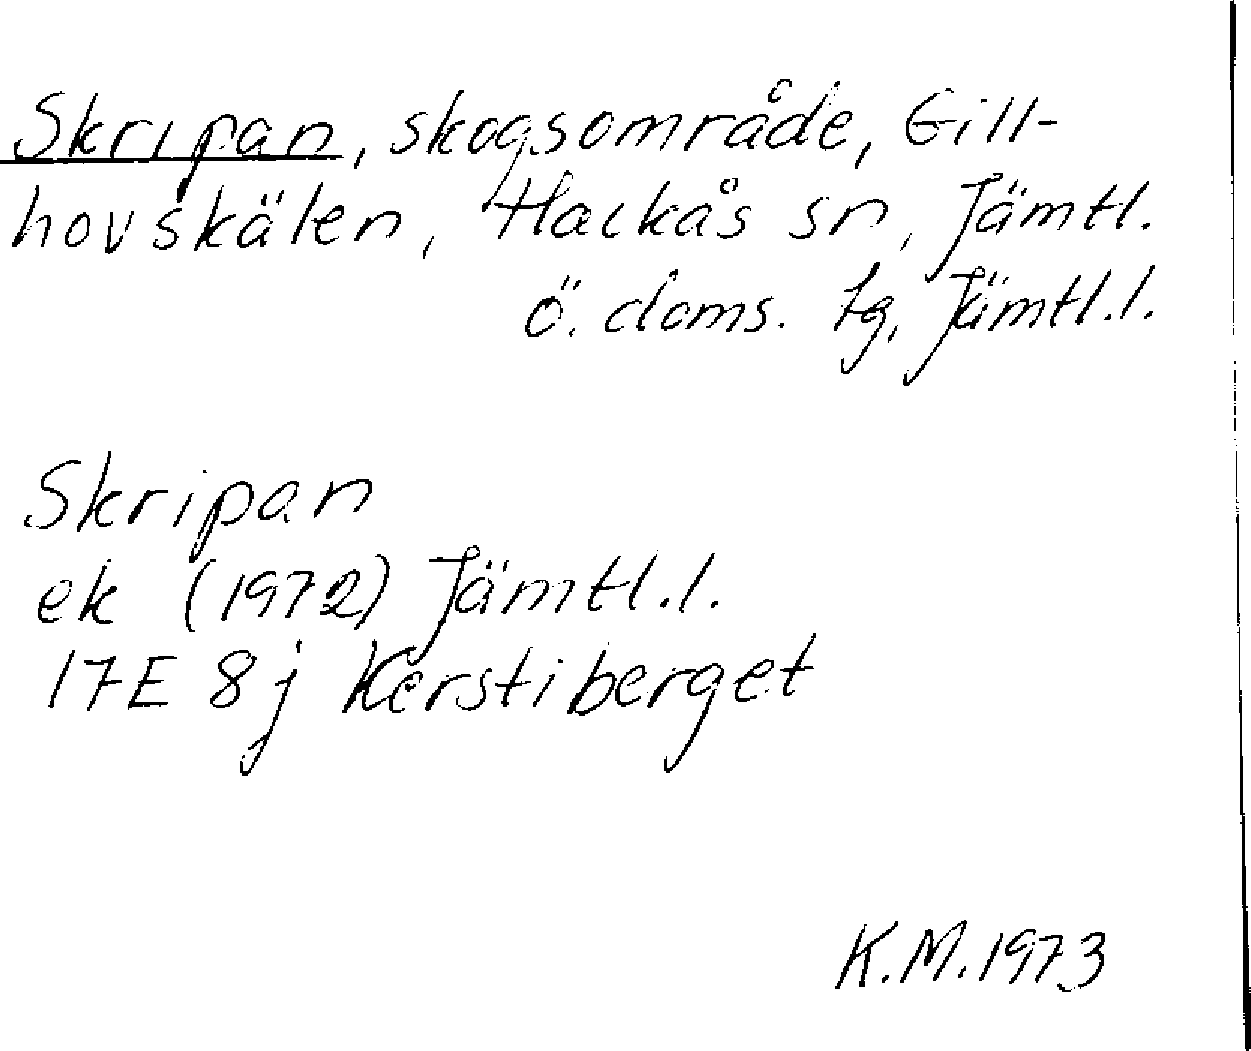 Skripan, skogsområde, Gill-
hovskälen, Hackås sn, Jämtl.
ö. doms. tg, Jämtl.l.
Skripan
ek (1972) Jämtl.l.
17E 8j Kerstiberget
K.M.1973